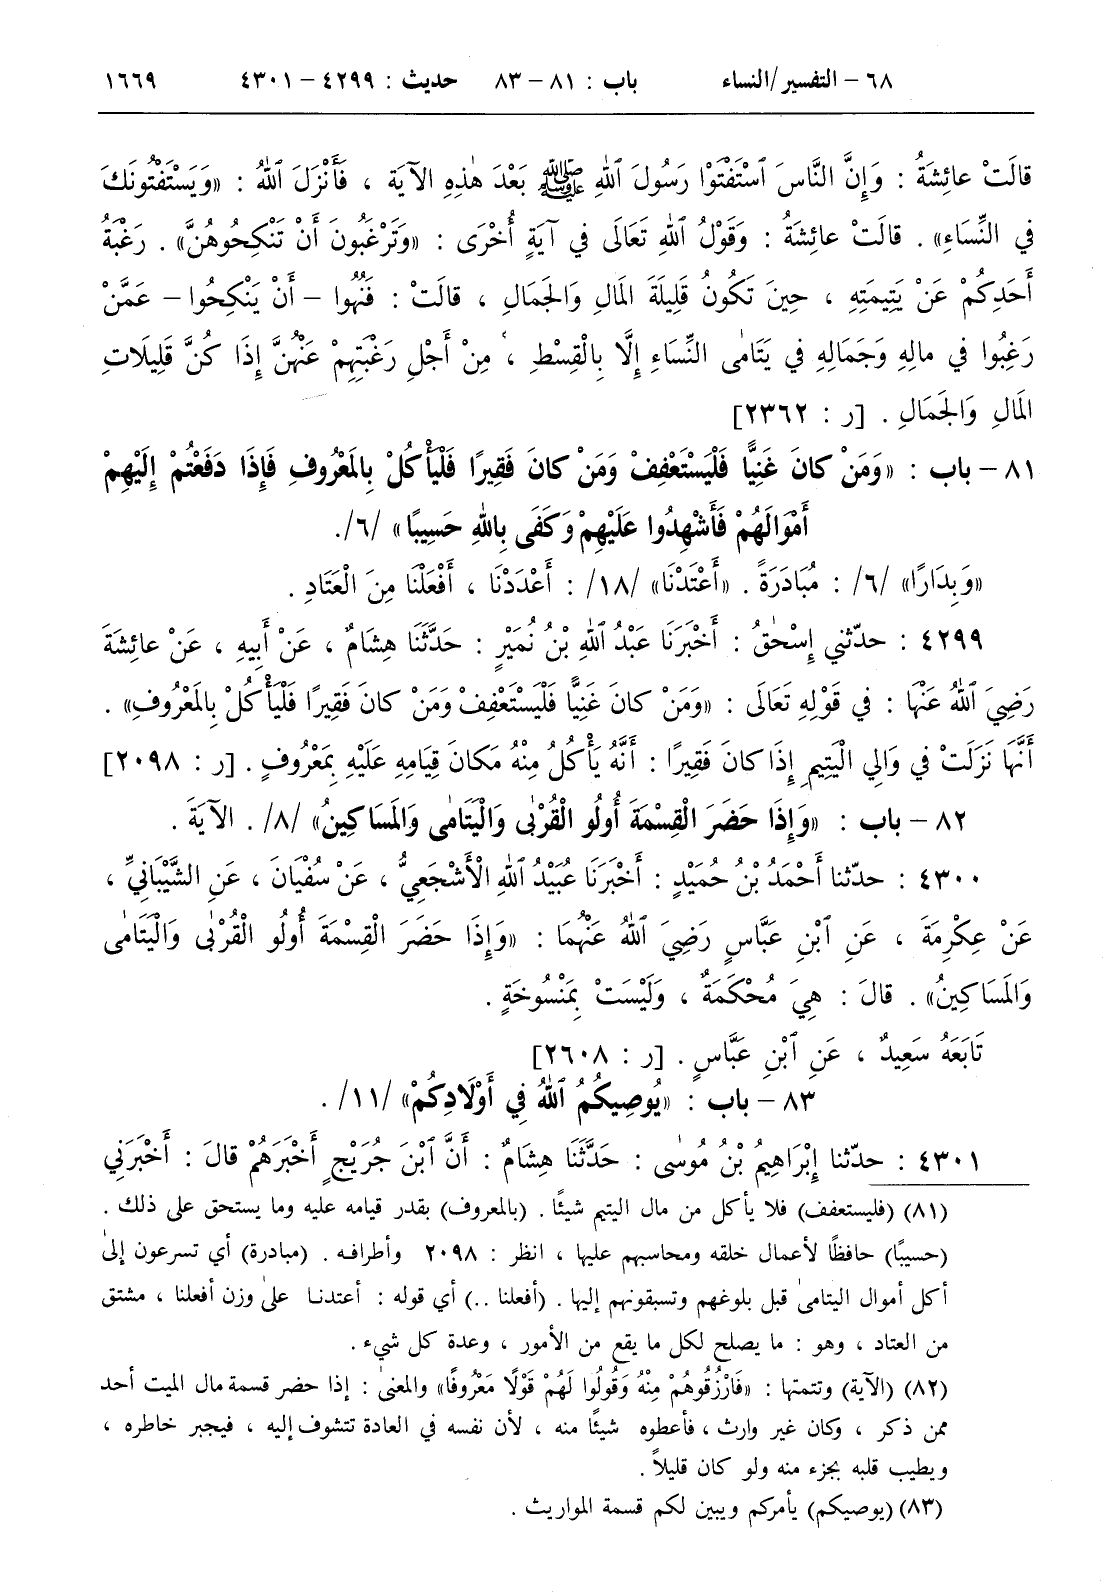 ٦٨ – التفسير/النساء باب : ٨١ – ٨٣ حديث : ٤٢٩٩ – ٤٣٠١ ١٦٦٩
قالَتْ عائِشَةُ : وَإِنَّ النَّاسَ ٱسْتَفْتَوْا رَسُولَ ٱللهِ ﷺ بَعْدَ هٰذِهِ الآيَةِ ، فَأَنْزَلَ ٱللهُ : «وَيَسْتَفْتُونَكَ
في النِّسَاءِ» . قالَتْ عائِشَةُ : وَقَوْلُ ٱللهِ تَعَالَى في آيَةٍ أُخْرَى : «وَتَرْغَبُونَ أَنْ تَنْكِحُوهُنَّ» . رَغْبَةُ
أَحَدِكُمْ عَنْ يَتِيمَتِهِ ، حِينَ تَكُونُ قَلِيلَةَ المَالِ وَالجَمَالِ ، قالَتْ : فَنُهُوا – أَنْ يَنْكِحُوا – عَمَّنْ
رَغِبُوا في مالِهِ وَجَمَالِهِ في يَتَامٰى النِّسَاءِ إِلَّا بِالْقِسْطِ ، مِنْ أَجْلِ رَغْبَتِهِمْ عَنْهُنَّ إِذَا كُنَّ قَلِيلَاتِ
المَالِ وَالجَمَالِ . [ر : ٢٣٦٢]
٨١ – باب : «وَمَنْ كانَ غَنِيًّا فَلْيَسْتَعْفِفْ وَمَنْ كانَ فَقِيرًا فَلْيَأْكُلْ بِالمَعْرُوفِ فَإِذَا دَفَعْتُمْ إِلَيْهِمْ
أَمْوَالَهُمْ فَأَشْهِدُوا عَلَيْهِمْ وَكَفَى بِاللهِ حَسِيبًا» /٦/.
«وَبِدَارًا» /٦/ : مُبَادَرَةً . «أَعْتَدْنَا» /١٨/ : أَعْدَدْنَا ، أَفْعَلْنَا مِنَ الْعَتَادِ .
٤٢٩٩ : حدّثني إِسْحٰقُ : أَخْبَرَنَا عَبْدُ ٱللهِ بْنُ نُمَيْرٍ : حَدَّثَنَا هِشَامٌ ، عَنْ أَبِيهِ ، عَنْ عائِشَةَ
رَضِيَ ٱللهُ عَنْهَا : في قَوْلِهِ تَعَالَى : «وَمَنْ كانَ غَنِيًّا فَلْيَسْتَعْفِفْ وَمَنْ كانَ فَقِيرًا فَلْيَأْكُلْ بِالمَعْرُوفِ» .
أَنَّهَا نَزَلَتْ في وَالِي الْيَتِيمِ إِذَا كانَ فَقِيرًا : أَنَّهُ يَأْكُلُ مِنْهُ مَكانَ قِيَامِهِ عَلَيْهِ بِمَعْرُوفٍ . [ر : ٢٠٩٨]
٨٢ – باب : «وَإِذَا حَضَرَ الْقِسْمَةَ أُولُو الْقُرْبٰى وَالْيَتَامٰى وَالمَسَاكِينُ» /٨/ . الآيَةَ .
٤٣٠٠ : حدّثنا أَحْمَدُ بْنُ حُمَيْدٍ : أَخْبَرَنَا عُبَيْدُ ٱللهِ الْأَشْجَعِيُّ ، عَنْ سُفْيَانَ ، عَنِ الشَّيْبَانِيِّ ،
عَنْ عِكْرِمَةَ ، عَنِ ٱبْنِ عَبَّاسٍ رَضِيَ ٱللهُ عَنْهُمَا : «وَإِذَا حَضَرَ الْقِسْمَةَ أُولُو الْقُرْبٰى وَالْيَتَامٰى
وَالمَسَاكِينُ» . قالَ : هِيَ مُحْكَمَةٌ ، وَلَيْسَتْ بِمَنْسُوخَةٍ .
تَابَعَهُ سَعِيدٌ ، عَنِ ٱبْنِ عَبَّاسٍ . [ر : ٢٦٠٨]
٨٣ – باب : «يُوصِيكُمُ ٱللهُ في أَوْلَادِكُمْ» /١١/ .
٤٣٠١ : حدّثنا إِبْرَاهِيمُ بْنُ مُوسٰى : حَدَّثَنَا هِشَامٌ : أَنَّ ٱبْنَ جُرَيْجٍ أَخْبَرَهُمْ قالَ : أَخْبَرَنِي
(٨١) (فليستعفف) فلا يأكل من مال اليتيم شيئًا . (بالمعروف) بقدر قيامه عليه وما يستحق على ذلك .
(حسيبًا) حافظًا لأعمال خلقه ومحاسبهم عليها ، انظر : ٢٠٩٨ وأطرافه . (مبادرة) أي تسرعون إلىٰ
أكل أموال اليتامىٰ قبل بلوغهم وتسبقونهم إليها . (أفعلنا ..) أي قوله : أعتدنا علىٰ وزن أفعلنا ، مشتق
من العتاد ، وهو : ما يصلح لكل ما يقع من الأمور ، وعدة كل شيء .
(٨٢) (الآية) وتتمتها : «فَارْزُقُوهُمْ مِنْهُ وَقُولُوا لَهُمْ قَوْلًا مَعْرُوفًا» والمعنىٰ : إذا حضر قسمة مال الميت أحد
ممن ذكر ، وكان غير وارث ، فأعطوه شيئًا منه ، لأن نفسه في العادة تتشوف إليه ، فيجبر خاطره ،
ويطيب قلبه بجزء منه ولو كان قليلاً .
(٨٣) (يوصيكم) يأمركم ويبين لكم قسمة المواريث .